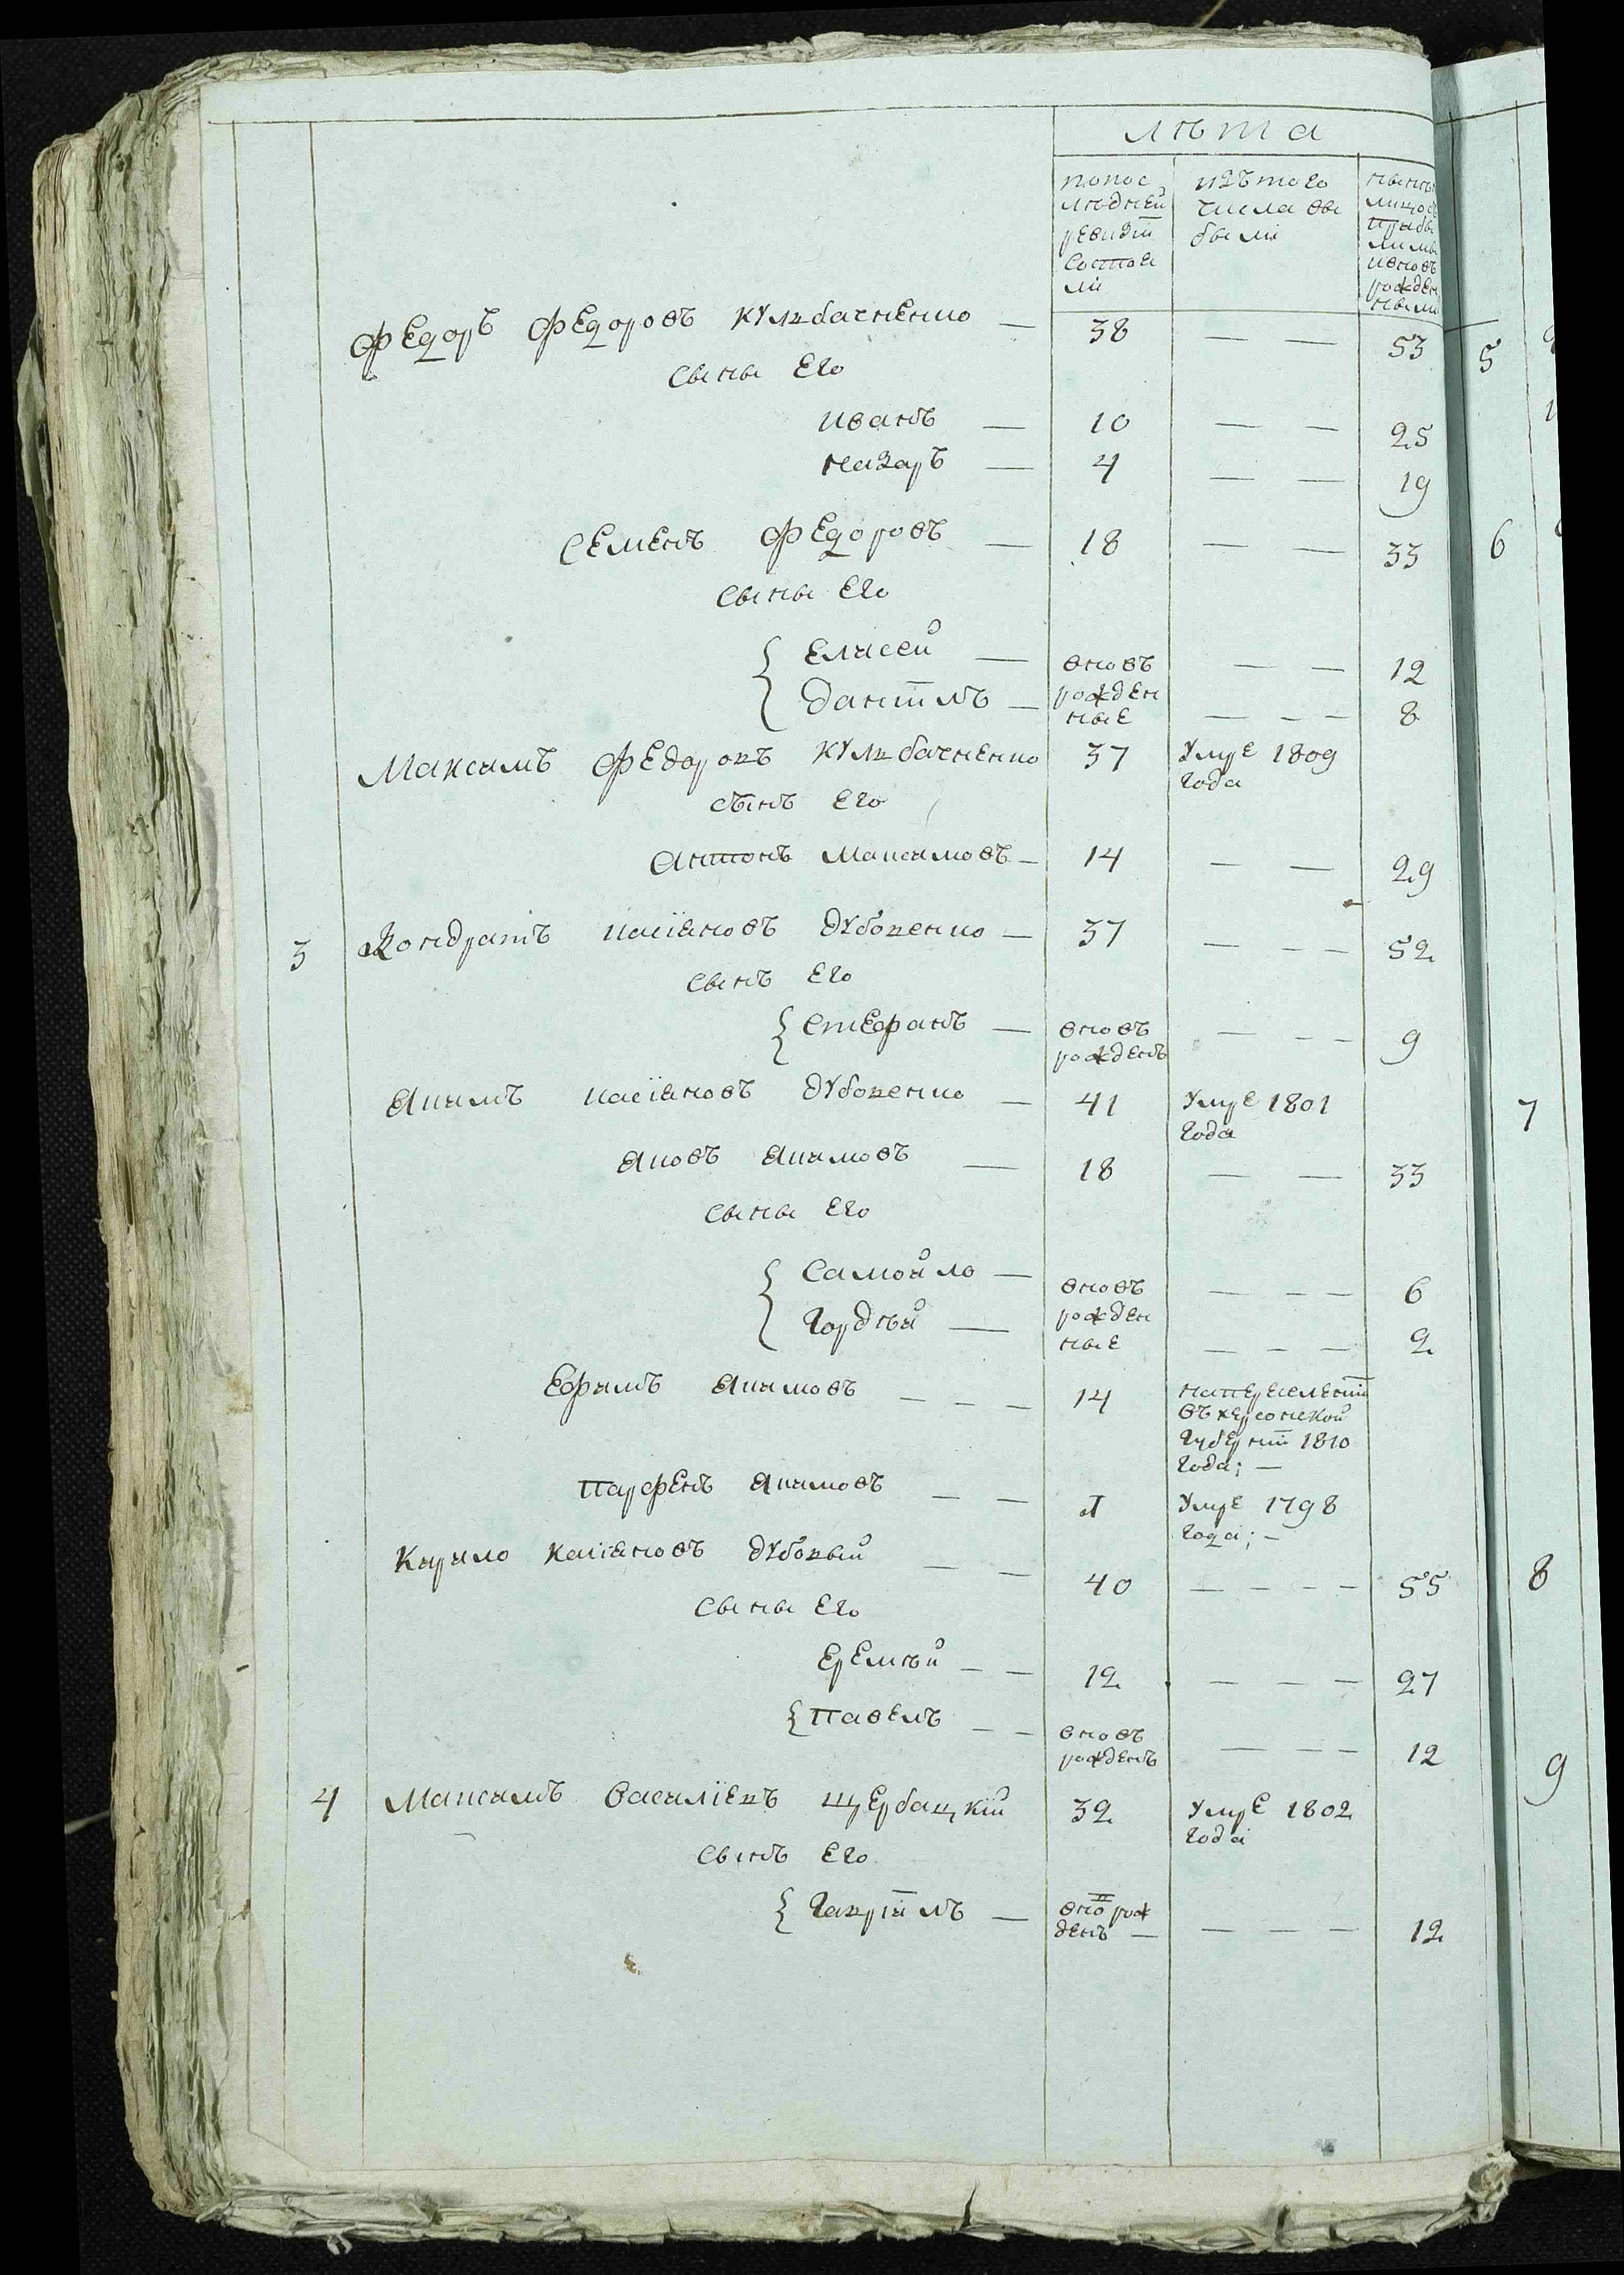 лѣта
попос
лѣдней
ревизіи
состоя
ли
изъ того
числа вы
были
Федоръ Федоровъ Кулбачненко — 38 — — 53
сыны Его
Иванъ — 10 — — 25
Назаръ — 4 — — 19
Семенъ Федоровъ — 18 — — 33
сыны Его
Елисей — вновъ — — 12
Даніилъ — рожден
ные — — — 8
Максимъ Федоровъ Кулбачненко 37 Умре 1809
года
сынъ Его
Антонъ Максимовъ — 14 — — 29
3 Кондратъ Касіяновъ Дубовенко — 37 — — — 52
сынъ Его
Стефанъ — вновъ — — — 9
рожденъ
Якимъ Касіяновъ Дубовенко — 41 Умре 1801
года
Яковъ Якимовъ — 18 — — 33
сыны Его
Самойло — вновъ — — — 6
Гордѣй — рожден
ные — — — 2
Ефимъ Якимовъ — — — 14 на переселеніи
въ херсонской
губерніи 1810
года; —
Парфенъ Якимовъ — — Умре 1798
года; —
Кирило Касіяновъ Дубовый — — 40 — — — — 55
сыны Его
Еремѣй — — 12 — — — 27
Павелъ — — вновъ — — — 12
рожденъ
4 Максимъ Василіевъ Щербацкій 32 Умре 1802
года
сынъ Его
Гавріилъ — вно рож
денъ — — — — 12
5
6
7
8
9